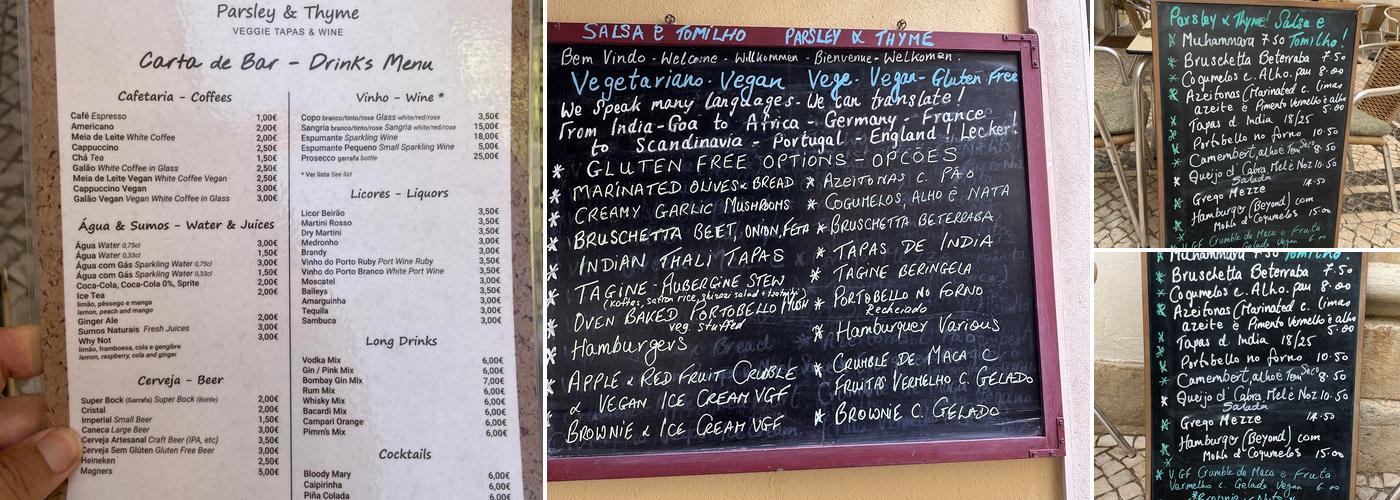 Parsley & Thyme
VEGGIE TAPAS & WINE
Carta de Bar - Drinks Menu
Cafetaria - Coffees
Café Espresso 1,00€
Americano 2,00€
Meia de Leite White Coffee 2,00€
Cappuccino 2,50€
Chá Tea 1,50€
Galão White Coffee in Glass 2,50€
Meia de Leite Vegan White Coffee Vegan 2,50€
Cappuccino Vegan 3,00€
Galão Vegan Vegan White Coffee in Glass 3,00€
Água & Sumos - Water & Juices
Água Water 0,75cl 3,00€
Água Water 0,33cl 1,50€
Água com Gás Sparkling Water 0,75cl 3,00€
Água com Gás Sparkling Water 0,33cl 1,50€
Coca-Cola, Coca-Cola 0%, Sprite 2,00€
Ice Tea 2,00€
limão, pêssego e manga
lemon, peach and mango
Ginger Ale 2,00€
Sumos Naturais Fresh Juices 3,00€
Why Not 3,00€
limão, framboesa, cola e gengibre
lemon, raspberry, cola and ginger
Cerveja - Beer
Super Bock (Garrafa) Super Bock (Bottle) 2,00€
Cristal 2,00€
Imperial Small Beer 1,50€
Caneca Large Beer 3,00€
Cerveja Artesanal Craft Beer (IPA, etc) 3,50€
Cerveja Sem Glúten Gluten Free Beer 3,00€
Heineken 2,50€
Magners 5,00€
Vinho - Wine *
Copo branco/tinto/rose Glass white/red/rose 3,50€
Sangria branco/tinto/rose Sangria white/red/rose 15,00€
Espumante Sparkling Wine 18,00€
Espumante Pequeno Small Sparkling Wine 5,00€
Prosecco garrafa bottle 25,00€
* Ver lista See list
Licores - Liquors
Licor Beirão 3,50€
Martini Rosso 3,50€
Dry Martini 3,50€
Medronho 3,00€
Brandy 3,00€
Vinho do Porto Ruby Port Wine Ruby 3,50€
Vinho do Porto Branco White Port Wine 3,50€
Moscatel 3,00€
Baileys 3,50€
Amarguinha 3,00€
Tequila 3,00€
Sambuca 3,00€
Long Drinks
Vodka Mix 6,00€
Gin / Pink Mix 6,00€
Bombay Gin Mix 7,00€
Rum Mix 6,00€
Whisky Mix 6,00€
Bacardi Mix 6,00€
Campari Orange 6,00€
Pimm's Mix 6,00€
Cocktails
Bloody Mary 6,00€
Caipirinha 6,00€
Piña Colada 6,00€
SALSA E TOMILHO PARSLEY & THYME
Bem Vindo - Welcome - Willkommen - Bienvenue - Welkomen
Vegetariano. Vegan Vege. Vegan - Gluten Free
We speak many languages. We can translate!
From India-Goa to Africa - Germany - France
to Scandinavia - Portugal - England! Lecker!
* GLUTEN FREE OPTIONS - OPCÕES
* MARINATED OLIVES & BREAD * AZEITONAS C. PAO
* CREAMY GARLIC MUSHROOMS * COGUMELOS, ALHO E NATA
* BRUSCHETTA BEET, ONION, FETA * BRUSCHETTA BETERRABA
* INDIAN THALI TAPAS * TAPAS DE INDIA
* TAGINE - AUBERGINE STEW * TAGINE BERINGELA
(koftas, safron rice, shirazi salad +
* OVEN BAKED PORTOBELLO * PORTOBELLO NO FORNO
veg. stuffed Recheiado
* Hamburgers * Hamburguer Various
* APPLE & RED FRUIT CRUMBLE * CRUMBLE DE MACA C
& VEGAN ICE CREAM VGF FRUITAS VERMELHO C. GELADO
* BROWNIE & ICE CREAM VGF * BROWNIE C. GELADO
Parsley & Thyme! Salsa e
* Muhammara 7.50 Tomilho!
* Bruschetta Beterraba 7.50
* Cogumelos c. Alho. pau 8.00
* Azeitonas (Marinated c. limao
azeite e Pimento Vermelho e alho
5.00
* Tapas d India 18/25
* Portobello no forno 10.50
* Camembert, alho e Tom Seco 8.50
* Queijo d Cabra Mel e Noz 10.50
Salada
* Grego Mezze 14.50
* Hamburger (Beyond) com
Molho d Cogumelos 15.00
V.GF Crumble da Maca e Fruta
Gelado Vegan 6.00
* Muhammara 7.50 Tomilho!
* Bruschetta Beterraba 7.50
* Cogumelos c. Alho. pau 8.00
* Azeitonas (Marinated c. limao
azeite e Pimento Vermelho e alho
5.00
* Tapas d India 18/25
* Portobello no forno 10.50
* Camembert, alho e Tom Seco 8.50
* Queijo d Cabra Mel e Noz 10.50
Salada
* Grego Mezze 14.50
* Hamburger (Beyond) com
Molho d Cogumelos 15.00
* V.GF Crumble da Maca e Fruta
Vermelho c. Gelado Vegan 6.00